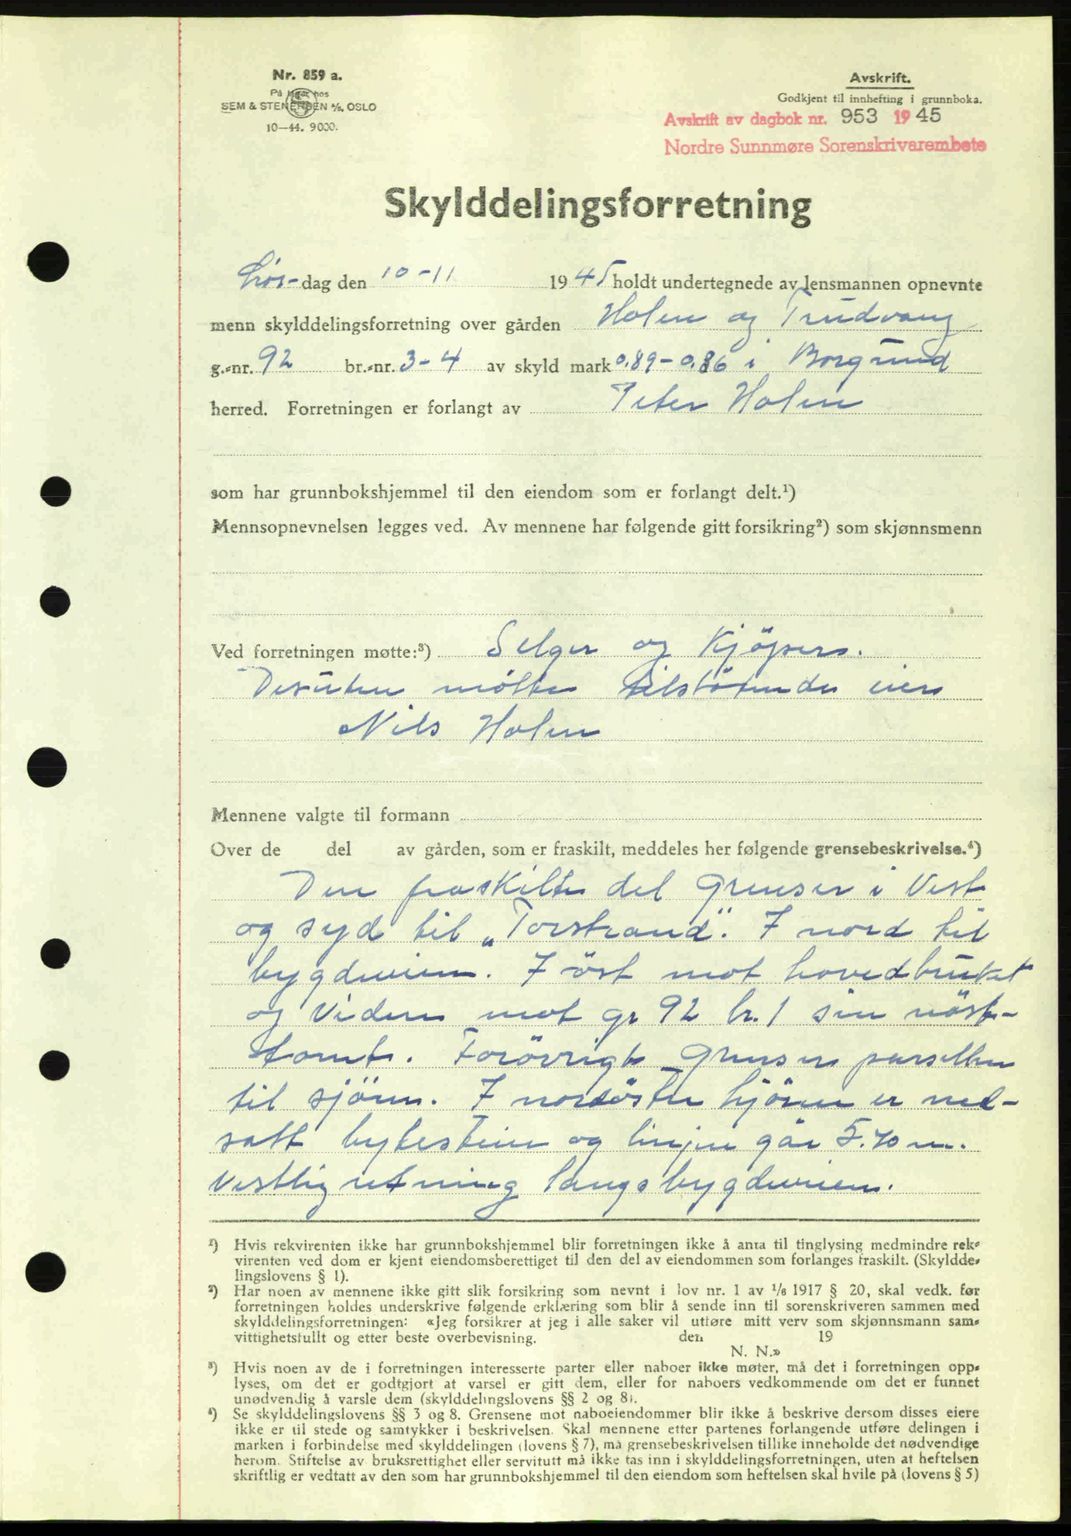 Nr. 859 a.
På lager hos
SEM & STENERSEN A/S, OSLO
10—44. 9000.
Avskrift.
Godkjent til innhefting i grunnboka.
Avskrift av dagbok nr. 953 1945
Nordre Sunnmøre Sorenskrivarembete
Skylddelingsforretning
Lør- dag den 10-11 1945 holdt undertegnede av lensmannen opnevnte
menn skylddelingsforretning over gården Holen og Trudvang
g.-nr. 92 br.-nr. 3-4 av skyld mark 0.89 - 0.86 i Borgund
herred. Forretningen er forlangt av Peter Holen
som har grunnbokshjemmel til den eiendom som er forlangt delt.¹)
Mennsopnevnelsen legges ved. Av mennene har følgende gitt forsikring²) som skjønnsmenn
Ved forretningen møtte:³) Selger og Kjöpere.
Desuten møtte tilstötende eier
Nils Holen
Mennene valgte til formann
Over de del av gården, som er fraskilt, meddeles her følgende grensebeskrivelse.⁴)
Den fraskilte del grenser i Vest
og syd til „Torstrand". I nord til
bygdeveien. I öst mot hovedbruket
og videre mot gr 92 br. 1 sin nöst-
tomt. Forövrigt grenser parsellen
til sjöen. I nordöstre hjörne er ned-
satt bytestein og linjen går 5.70 m.
Vestlig retning langs bygdeveien.
¹) Hvis rekvirenten ikke har grunnbokshjemmel blir forretningen ikke å anta til tinglysing medmindre rek-
virenten ved dom er kjent eiendomsberettiget til den del av eiendommen som forlanges fraskilt. (Skyldde-
lingslovens § 1).
²) Har noen av mennene ikke gitt slik forsikring som nevnt i lov nr. 1 av 1/6 1917 § 20, skal vedk. før
forretningen holdes underskrive følgende erklæring som blir å sende inn til sorenskriveren sammen med
skylddelingsforretningen: «Jeg forsikrer at jeg i alle saker vil utføre mitt verv som skjønnsmann sam-
vittighetsfullt og etter beste overbevisning. den 19
N. N.»
³) Hvis noen av de i forretningen interesserte parter eller naboer ikke møter, må det i forretningen opp-
lyses, om det er godtgjort at varsel er gitt dem, eller for naboers vedkommende om det er funnet
unødvendig å varsle dem (skylddelingslovens §§ 2 og 8).
⁴) Se skylddelingslovens §§ 3 og 8. Grensene mot naboeiendommer blir ikke å beskrive dersom disses eiere
ikke er til stede og samtykker i beskrivelsen. Skal mennene etter partenes forlangende utføre delingen i
marken i forbindelse med skylddelingen (lovens § 7), må grensebeskrivelsen tillike inneholde det nødvendige
herom. Stiftelse av bruksrettighet eller servitutt må ikke tas inn i skylddelingsforretningen, uten at heftelsen
skriftlig er vedtatt av den som har grunnbokshjemmel til den eiendom som heftelsen skal hvile på (lovens § 5)